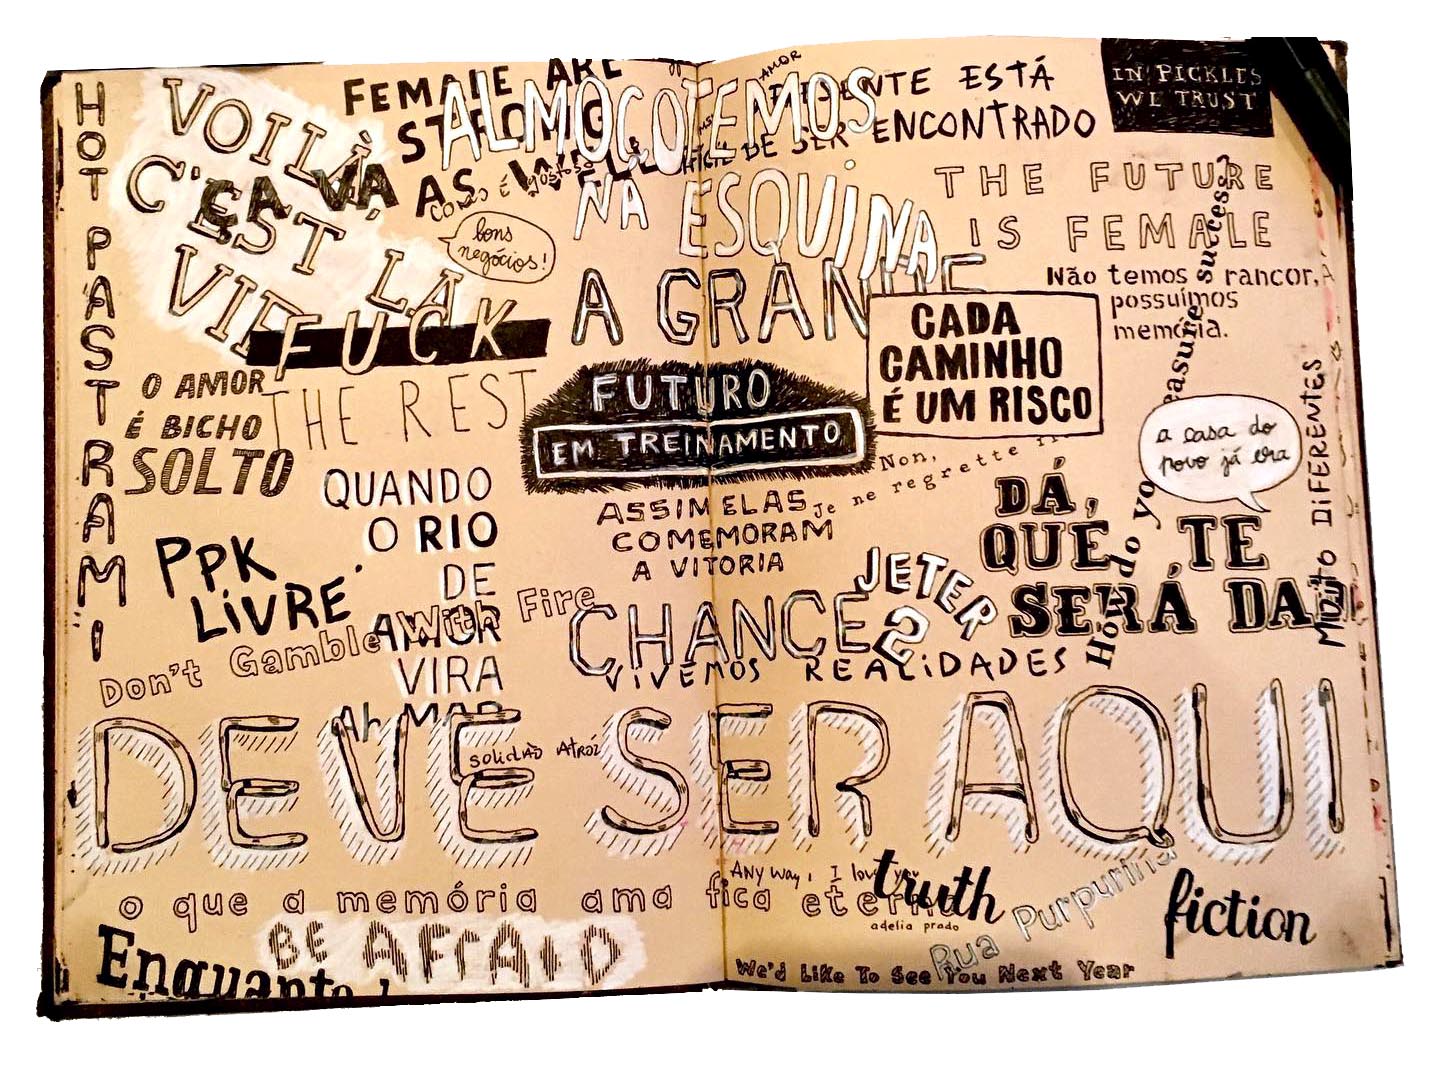 HOT PASTRAMI
VOILÀ
C'EST LA
VIE
ÇA VA
FEMALE ARE
STRONG
AS WELL
ALMOÇO TEMOS
NA ESQUINA
bons
negócios!
AMOR
PRESENTE ESTÁ
DIFÍCIL DE SER ENCONTRADO
IN PICKLES
WE TRUST
THE FUTURE
IS FEMALE
Não temos rancor,
possuímos
memória.
A GRANDE
CHANCE
DEVE SER AQUI
CADA
CAMINHO
É UM RISCO
FUCK
THE REST
O AMOR
É BICHO
SOLTO
FUTURO
EM TREINAMENTO
a casa do
povo já era
MUITO DIFERENTES
How do you measure success?
QUANDO
O RIO
DE
AMOR
VIRA
MAR
ASSIM ELAS
COMEMORAM
A VITORIA
Non,
Je ne regrette
DÁ,
QUE TE
SERÁ DA
PPK
LIVRE
Don't Gamble With Fire
JETER
2
VIVEMOS REALIDADES
solidão Atroz
o que a memória ama fica eterno
adelia prado
Any way, I love you
truth
fiction
Rua Purpurina
BE AFRAID
Enquanto
We'd Like To See You Next Year